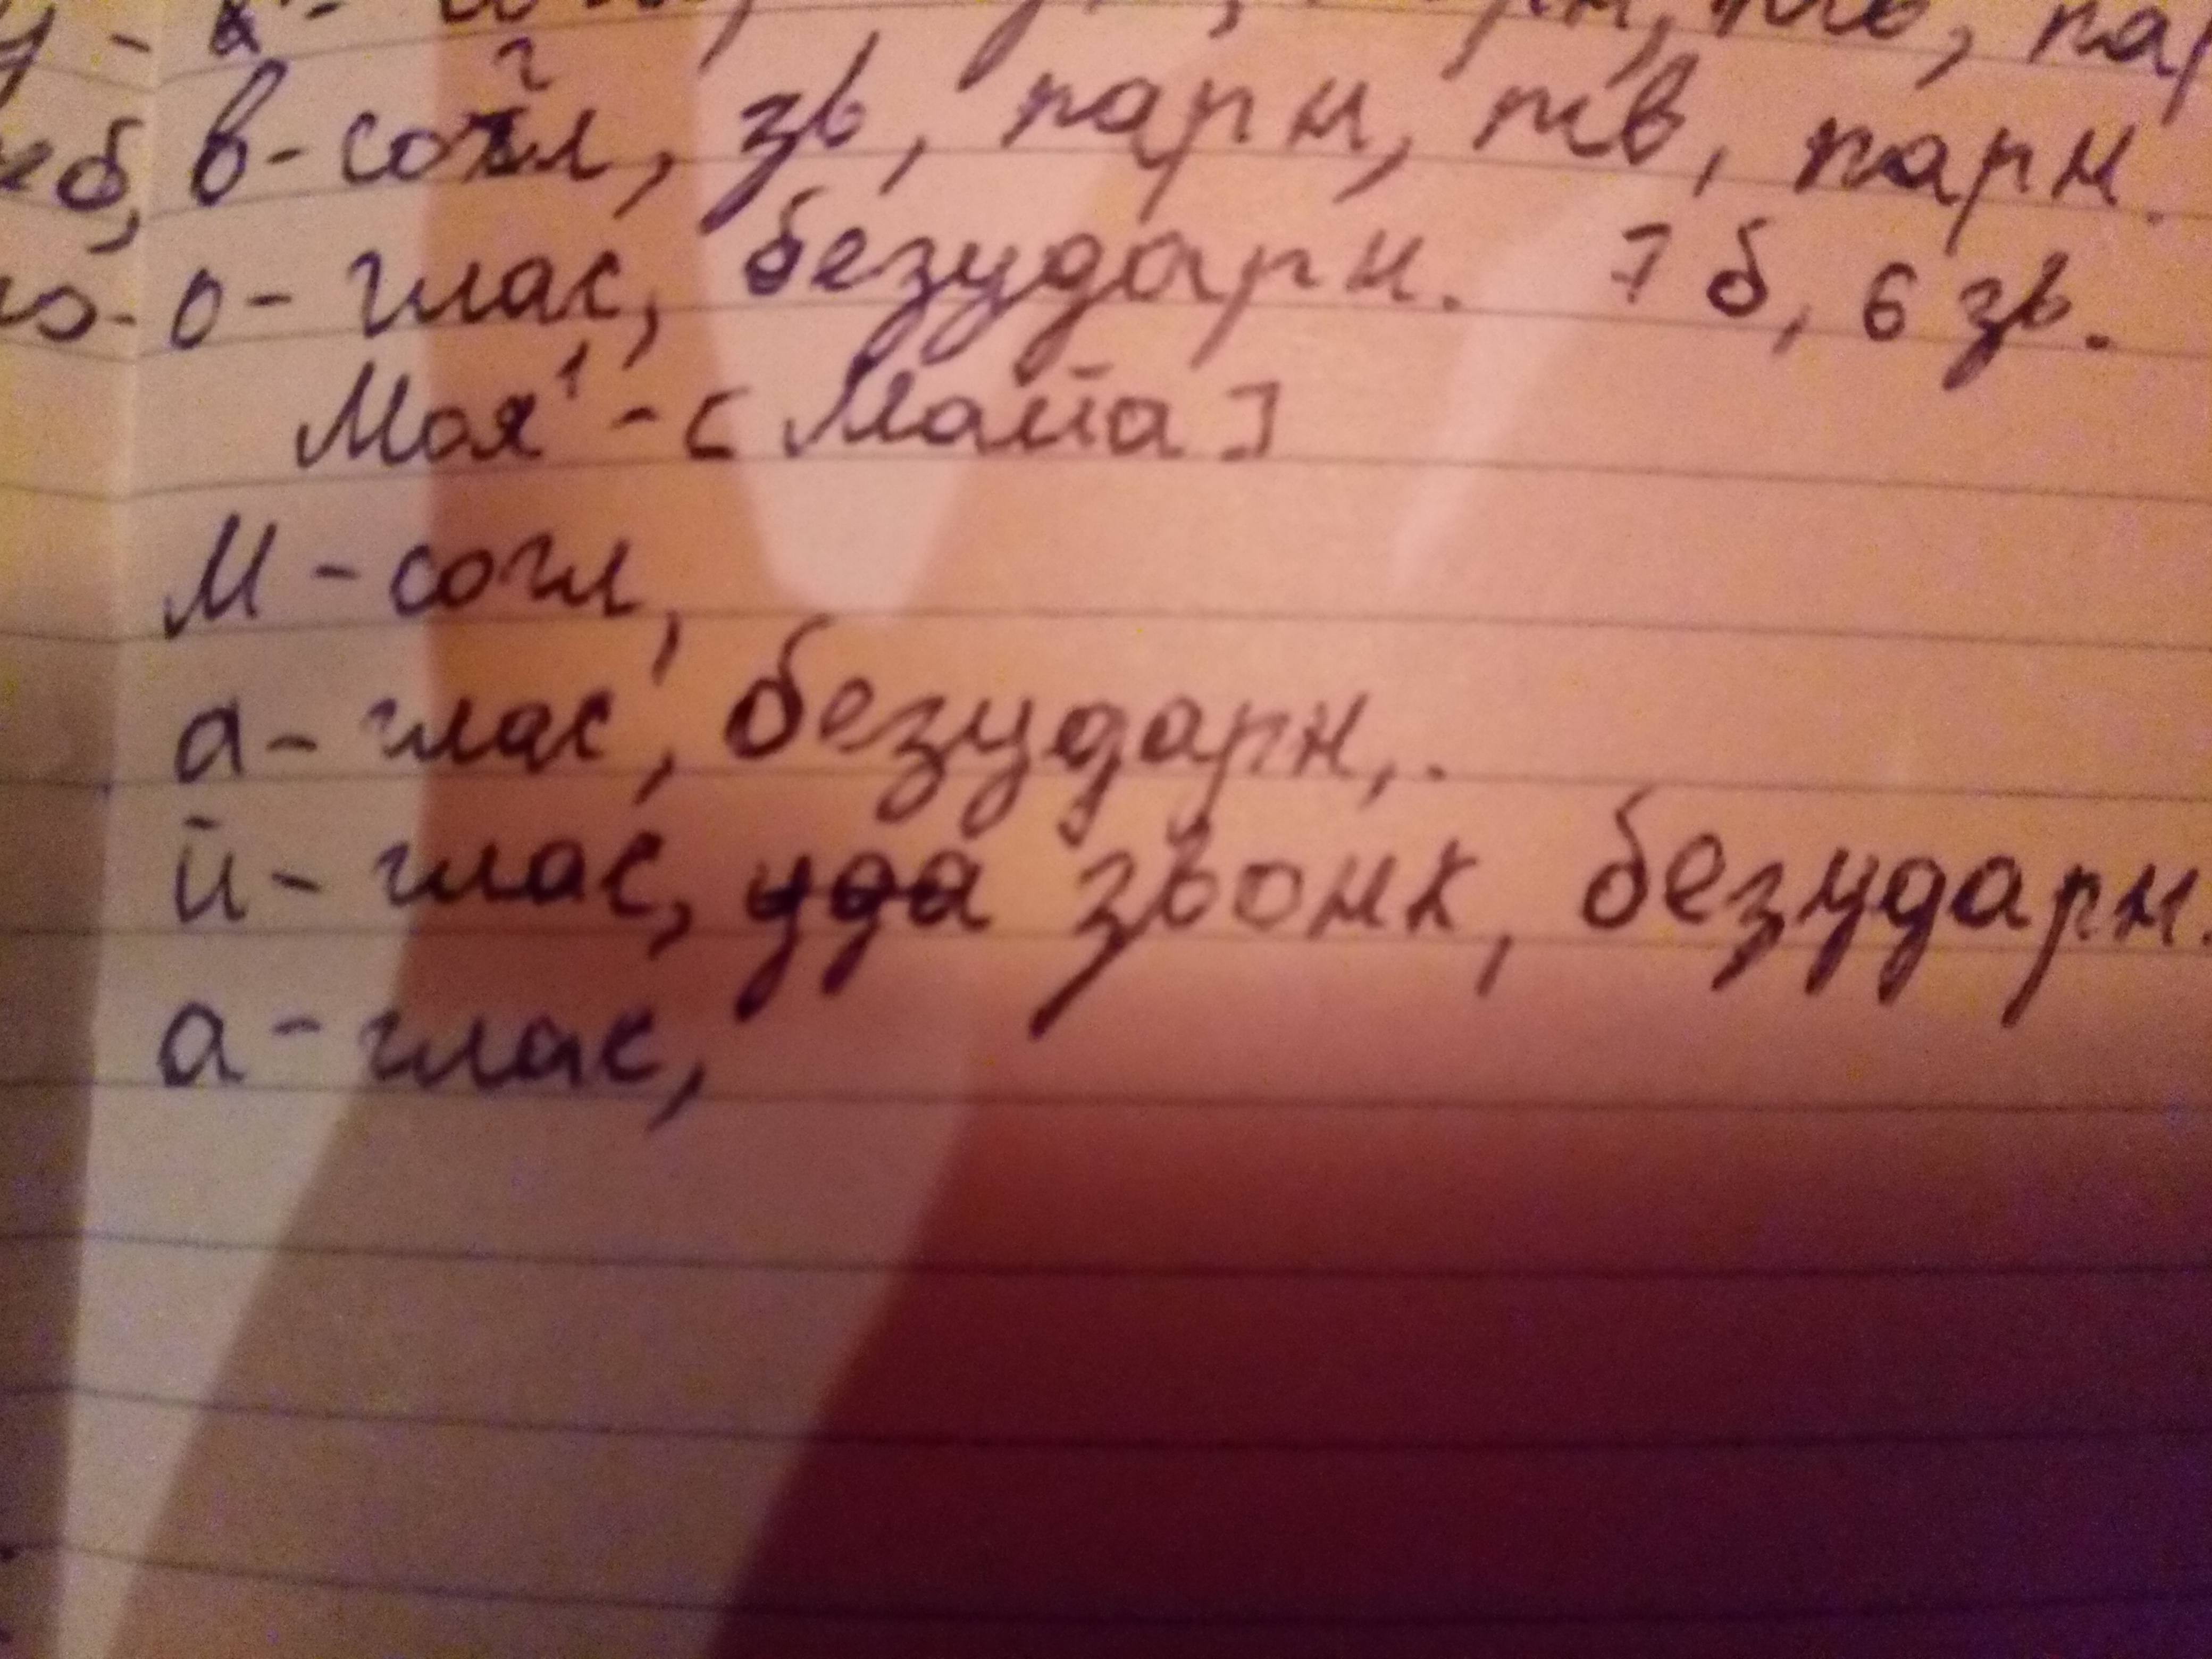 в - согл, зв, парн, тв, парн.
о - глас, безударн. 7 б, 6 зв.
Моя' - [Майа]
М - согл,
а - глас, безударн,.
й - глас, уда звонк, безударн.
а - глас,